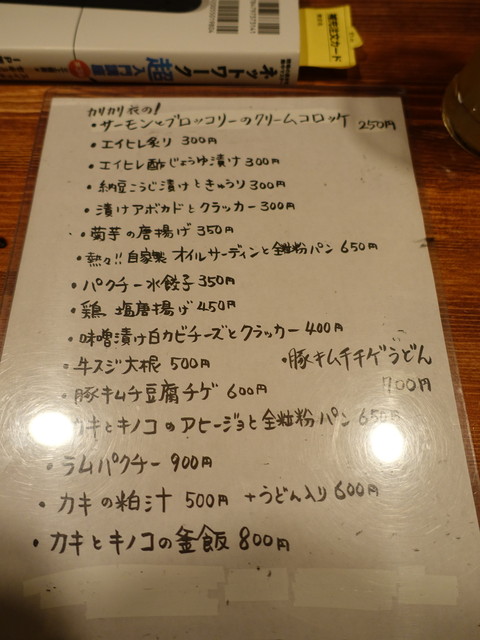 ネットワーク
超入門講座
カリカリ衣の!
・サーモンとブロッコリーのクリームコロッケ 250円
・エイヒレ炙り 300円
・エイヒレ酢じょうゆ漬け 300円
・納豆こうじ漬けときゅうり 300円
・漬けアボカドとクラッカー 300円
・菊芋の唐揚げ 350円
・熱々!!自家製 オイルサーディンと全粒粉パン 650円
・パクチー水餃子 350円
・鶏 塩唐揚げ 450円
・味噌漬け白カビチーズとクラッカー 400円
・牛スジ大根 500円
・豚キムチチゲうどん
700円
・豚キムチ豆腐チゲ 600円
カキとキノコのアヒージョと全粒粉パン 650円
・ラムパクチー 900円
・カキの粕汁 500円 +うどん入り 600円
・カキとキノコの釜飯 800円